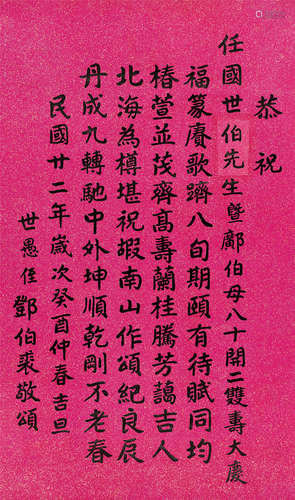 恭祝
任國世伯先生暨鄺伯母八十開二雙壽大慶
福篆賡歌躋八旬期頤有待賦同均
椿萱並茂齊高壽蘭桂騰芳藹吉人
北海為樽堪祝嘏南山作頌紀良辰
丹成九轉馳中外坤順乾剛不老春
民國廿二年歲次癸酉仲春吉旦
世愚侄鄧伯裘敬頌